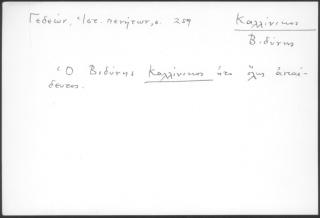 Γεδεών, Ἱστ. πενήτων, σ. 259
Καλλίνικος
Βιδύνης
Ὁ Βιδύνης Καλλίνικος ἦτο ὅλως ἀπαί-
δευτος.